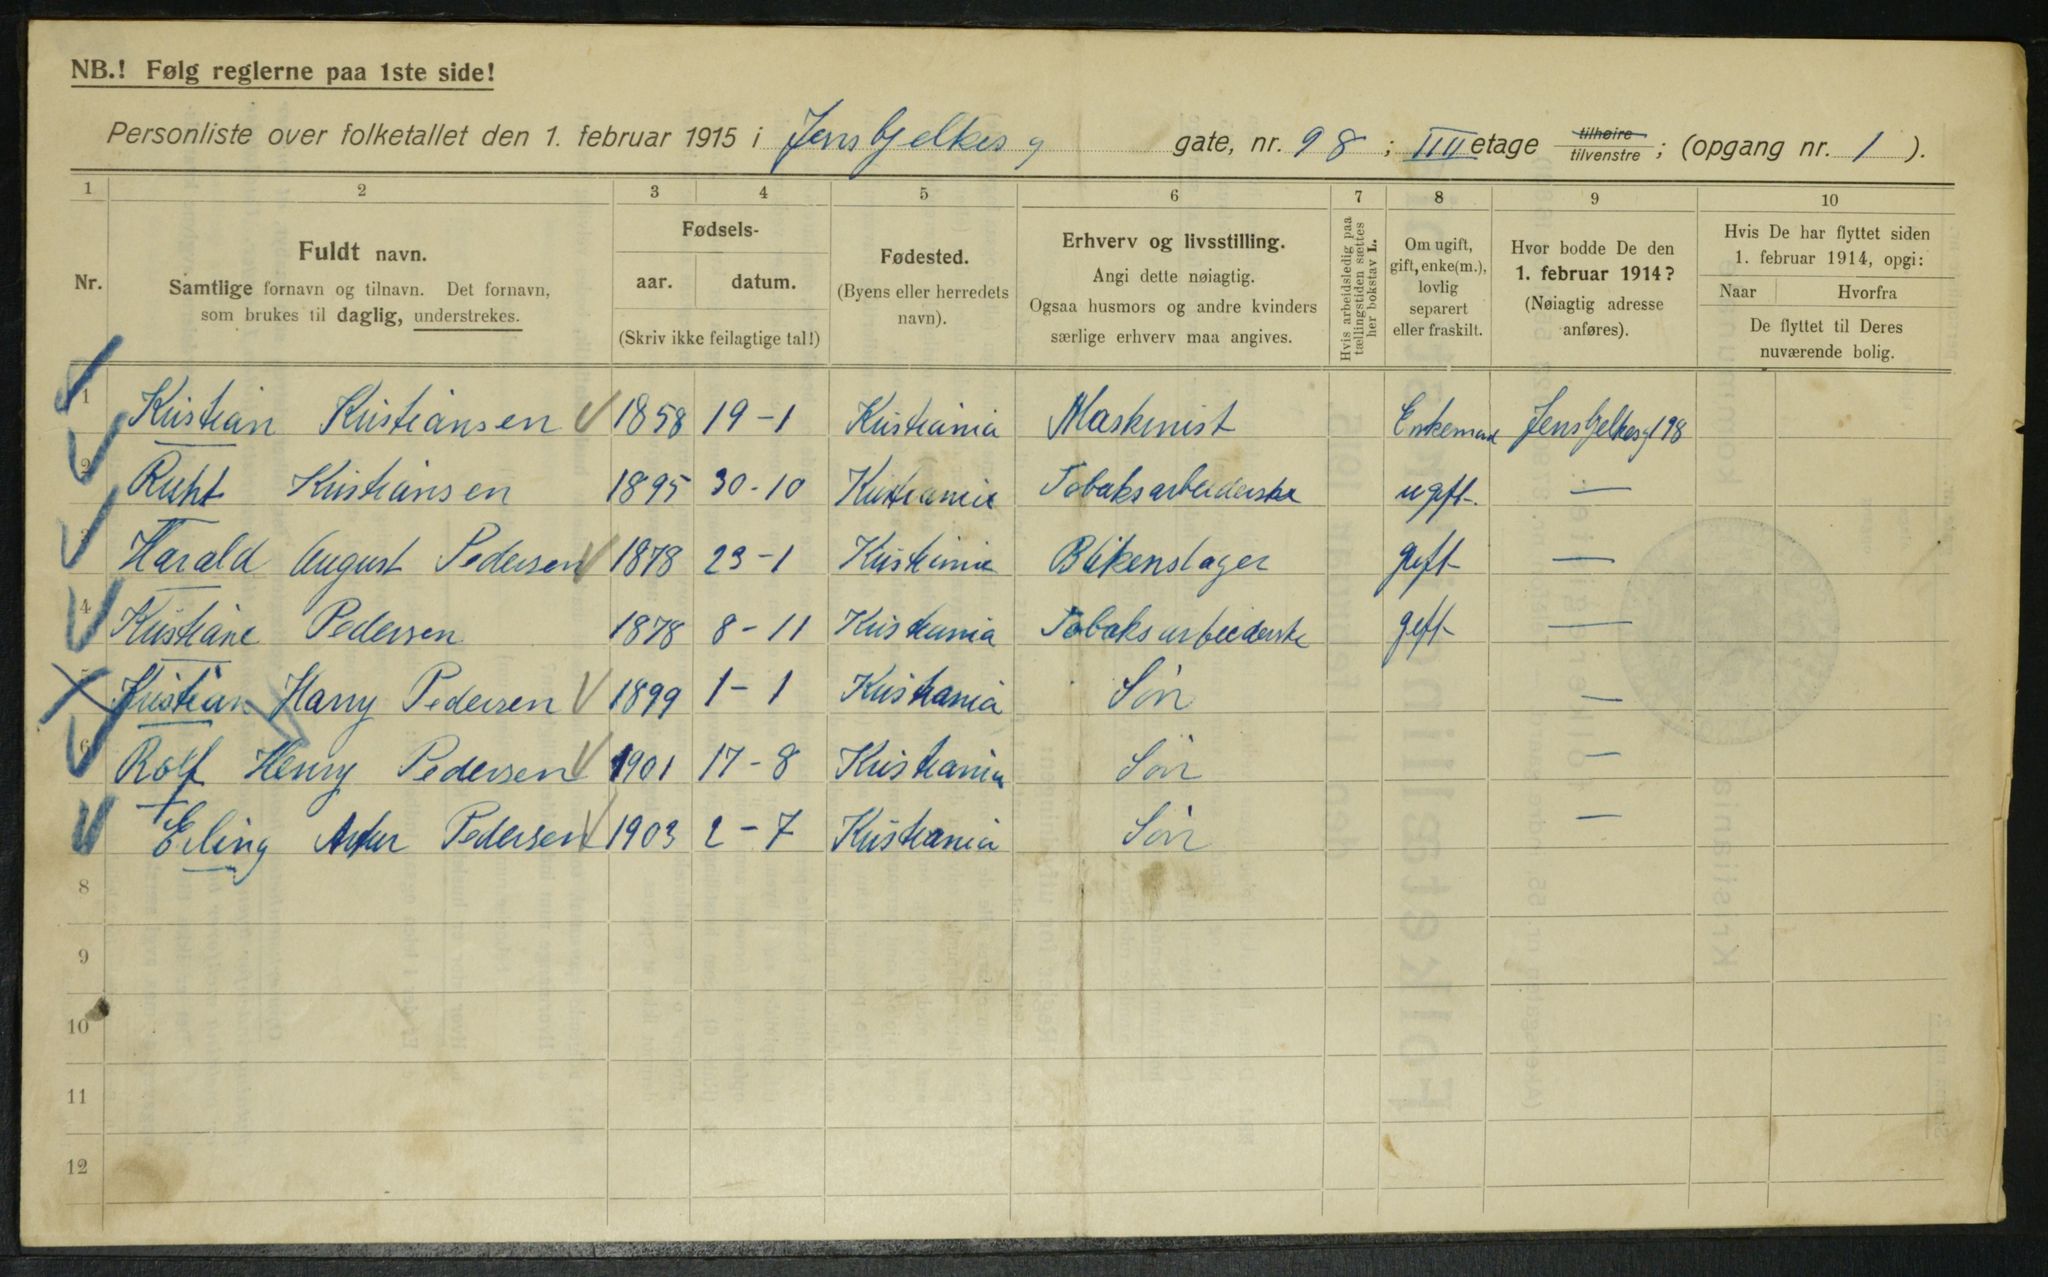 NB.! Følg reglerne paa 1ste side!
Personliste over folketallet den 1. februar 1915 i Jens Bjelkes g gate, nr. 98; IIII etage tilhøire tilvenstre; (opgang nr. 1).
1 2 3 4 5 6 7 8 9 10
Nr.
Fuldt navn.
Samtlige fornavn og tilnavn. Det fornavn,
som brukes til daglig, understrekes.
Fødsels-
aar. datum.
(Skriv ikke feilagtige tal!)
Fødested.
(Byens eller herredets
navn).
Erhverv og livsstilling.
Angi dette nøiagtig.
Ogsaa husmors og andre kvinders
særlige erhverv maa angives.
Hvis arbeidsledig paa
tællingstiden sættes
her bokstav L.
Om ugift,
gift, enke(m.),
lovlig
separert
eller fraskilt.
Hvor bodde De den
1. februar 1914?
(Nøiagtig adresse
anføres).
Hvis De har flyttet siden
1. februar 1914, opgi:
Naar Hvorfra
De flyttet til Deres
nuværende bolig.
1 Kristian Kristiansen 1858 19-1 Kristiania Maskinist Enkemand Jens Bjelkesg 98
2 Ruht Kristiansen 1895 30-10 Kristiania Tobaksarbeiderske ugift. —
3 Harald August Pedersen 1878 23-1 Kristiania Blikenslager gift —
4 Kristiane Pedersen 1878 8-11 Kristiania Tobaksarbeiderske gift —
5 Kristian Harry Pedersen 1899 1-1 Kristiania Søn —
6 Rolf Henry Pedersen 1901 17-8 Kristiania Søn —
Erling Artur Pedersen 1903 2-7 Kristiania Søn —
8
9
10
11
12